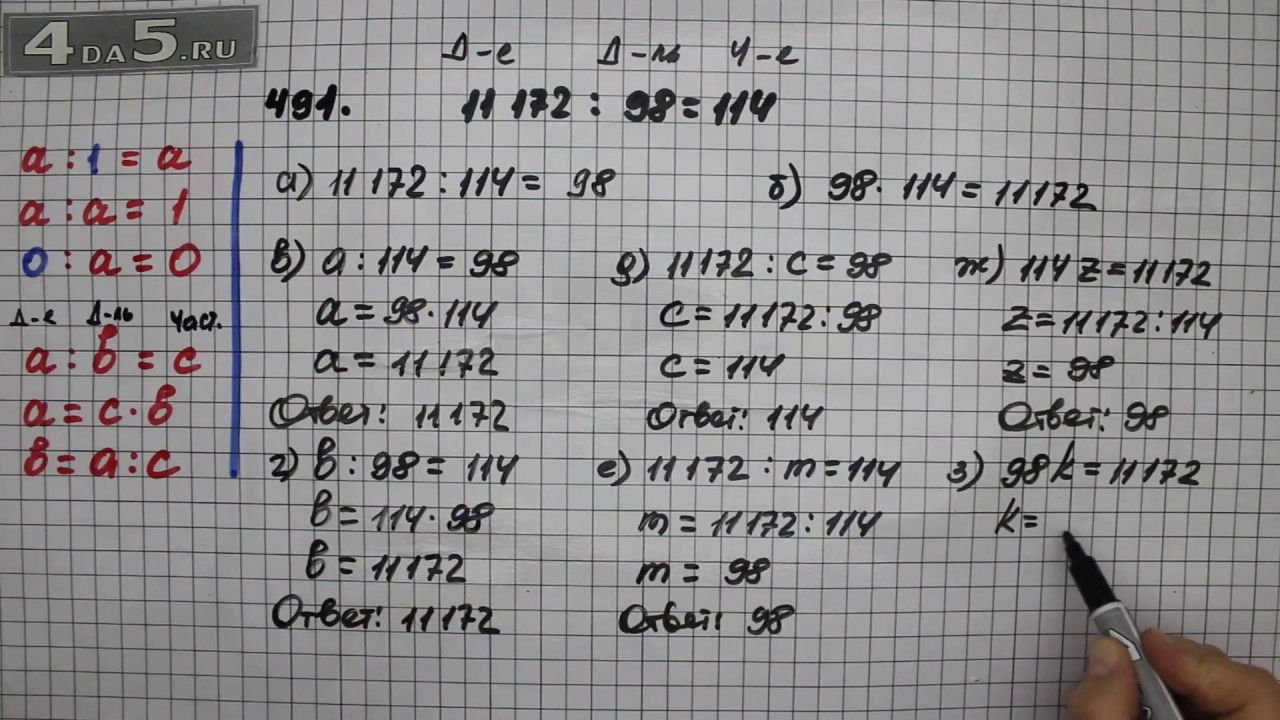 4DA5.RU
Д-е Д-ль Ч-е
491. 11 172 : 98 = 114
a : 1 = a
a : a = 1
0 : a = 0
Д-е Д-ль Част.
a : в = c
a = c · в
в = a : c
а) 11 172 : 114 = 98
б) 98 · 114 = 11172
в) a : 114 = 98
a = 98 · 114
a = 11172
Ответ: 11172
г) в : 98 = 114
в = 114 · 98
в = 11172
Ответ: 11172
д) 11172 : c = 98
c = 11172 : 98
c = 114
Ответ: 114
е) 11172 : m = 114
m = 11172 : 114
m = 98
Ответ: 98
ж) 114 z = 11172
z = 11172 : 114
z = 98
Ответ: 98
з) 98 k = 11172
k =